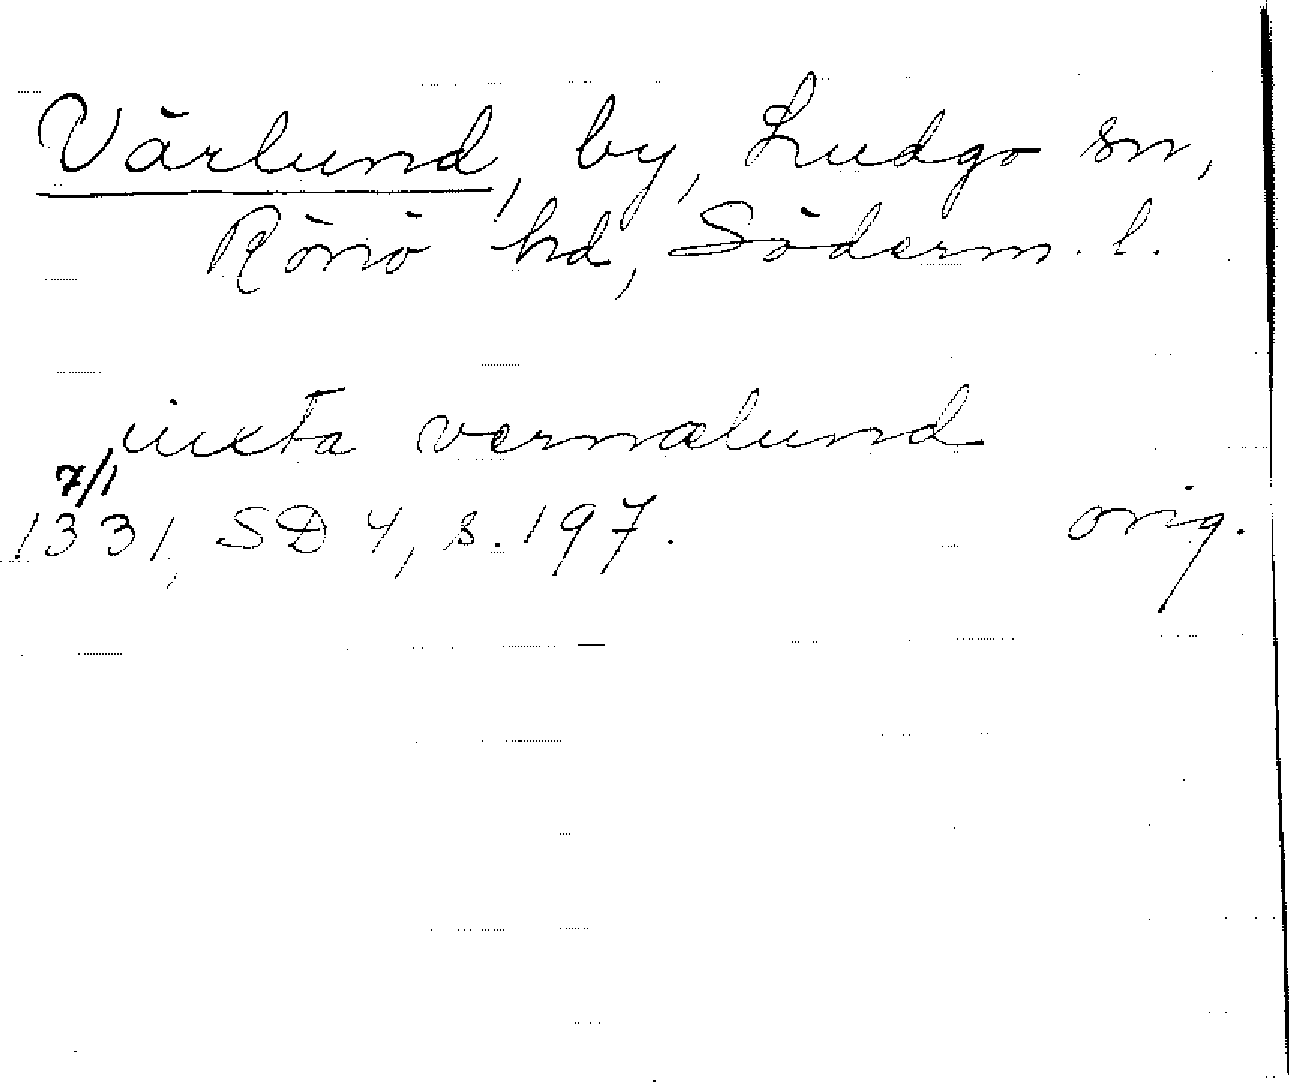 Värlund, by, Ludgo sn,
Rönö hd, Söderm. l.
iuxta vernalund
7/1
1331, SD 4, s. 197. orig.